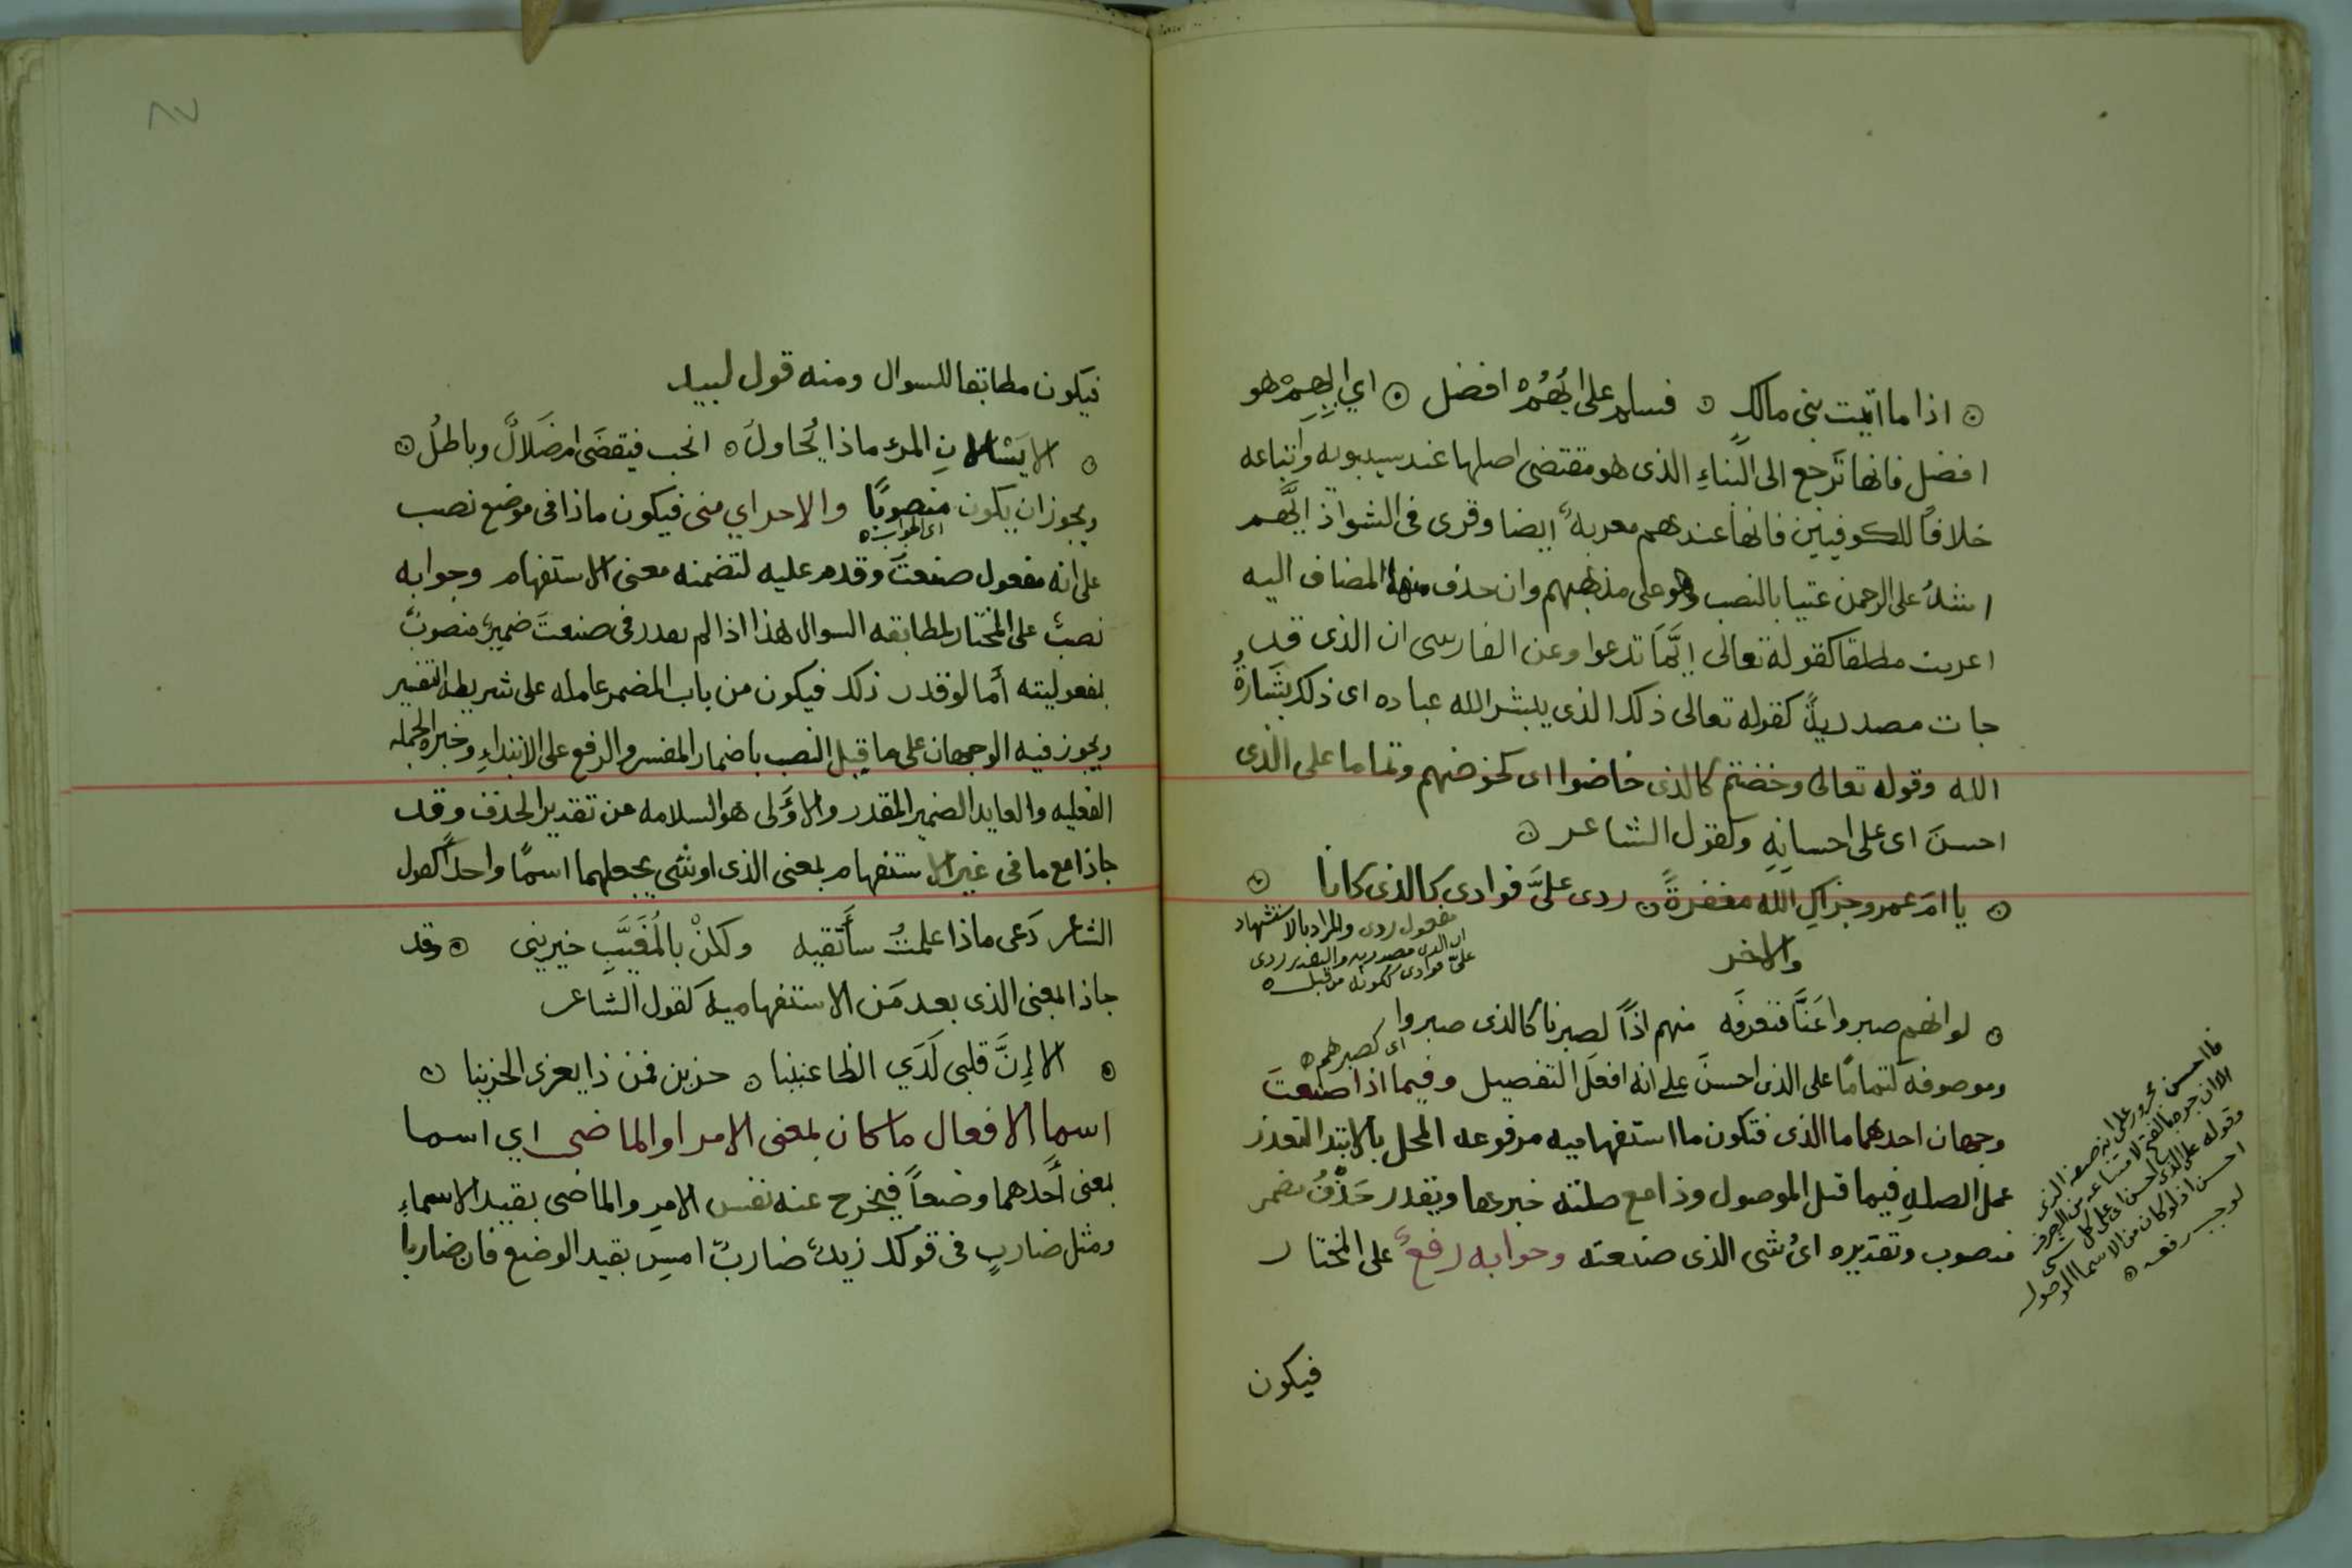 ۞ اذا ما اتيت بنى مالكٍ ۞ فسلم على ايُّهُمْ افضل ۞ اي ايِهِمْ هو
افضل فانها تَرجع الى البناءِ الذى هو مقتضى اصلها عند سيبويه واَتباعه
خلافاً للكوفيين فانها عندهم معربةٌ ايضا وقرى فى الشواذ ايَّهم
اشدُّ على الرحمن عتيا بالنصب وهو على مذهبهم وان حذف منها المضاف اليه
اعربت مطلقا كقوله تعالى ايَّمَا تدعوا وعن الفارسى ان الذى قد
جات مصدريةً كقوله تعالى ذلك الذى يبشر الله عباده اى ذلك بشَارةُ
الله وقوله تعالى وخضتم كالذى خاضوا اى كخوضهم وتماما على الذى
احسنَ اى على احسانِهِ وكقول الشاعر ۞
۞ يا امَ عمرو جزاكِ الله مغفرةً ۞ ردى علىَّ فوادى كالذى كانا ۞
مفعول ردى والمراد بالاستشهاد
ان الذى مصدريه والتقدير ردى
علىّ فوادى ككونه من قبل ۞
والاخر
۞ لو انهم صبروا عَنَّا فنعرفَه منهم اذاً لصبرنا كالذى صبروا
اى كصبرهم ۞
وموصوفه كتمامًا على الذى احسنَ على انه افعلَ التفصيل وفيما اذا صنعتَ
وجهان احدهما ما الذى فتكون ما استفهاميه مرفوعه المحل بالابتدا لتعذر
عمل الصلهِ فيما قبل الموصول وذا مع صلته خبرها ويقدر حَذْفُ مضمر
منصوب وتقديره اىُ شى الذى صنعته وجوابه رفعٌ على المختار
فما احسن مجرور على انه صفه الذى
الا ان جره بالفتح لامتناعه من الصرف
وقوله على الذى احسن اى على كل شى
احسن اذ لو كان من الاسما الموصوله
لوجب رفعه ۞
فيكون
فيكون مطابقا للسوال ومنه قول لبيد
۞ الا يَسْالانِ المرء ماذا يُحَاولُ ۞ انحب فيقضَى ام ضَلالٌ وباطلُ ۞
ويجوز ان يكون منصوبًا والاحر اي منى فيكون ماذا فى موضع نصب
اى الجواب ۞
على انه مفعول صنعتَ وقدم عليه لتضمنه معنى الاستفهام وجوابه
نصبٌ على المختار لمطابقه السوال هذا اذا لم يقدر فى صنعتَ ضميرٌ منصوبٌ
بمفعوليته أما لو قدر ذلك فيكون من باب المضمر عامله على شريطه التفسير
ويجوز فيه الوجهان على ما قِيل النصب باضمار المفسر والرفع على الابتداءِ وخبره الجمله
الفعليه والعايد الضمير المقدر والاوَلى هو السلامه من تقدير الحذف وقد
جا ذا مع ما فى غير الاستفهام بمعنى الذى او شى بجعلهما اسمًا واحداً كقول
الشاعر دَعى ماذا علمتُ سأتقيه ولكنْ بالمُغَيَّبِ خبرينى ۞ وقد
جا ذا بمعنى الذى بعد مَن الاستفهاميه كقول الشاعر
۞ الا اِنَّ قلبى لَدَي الظاعنينا ۞ حزين فمن ذا يعزى الحزينا ۞
اسما الافعال ما كان بمعنى الامر او الماضى اي اسما
بمعنى أَحدهما وضعاً فيخرج عنه نفس الامرِ والماضى بقيد الاسماءِ
ومثل ضاربٍ فى قولك زيدٌ ضاربٌ امسِ بقيد الوضع فان ضاربا